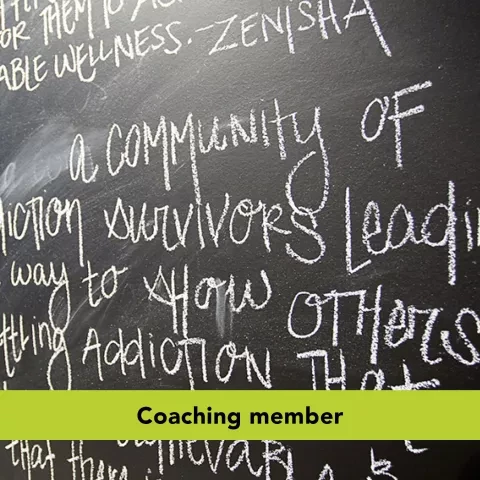 OR THEM TO
ABLE WELLNESS. - ZENISHA
a COMMUNITY OF
ICTION SURVIVORS LEADI
WAY TO SHOW OTHERS
TTLING ADDICTION THAT
Coaching member
THAT